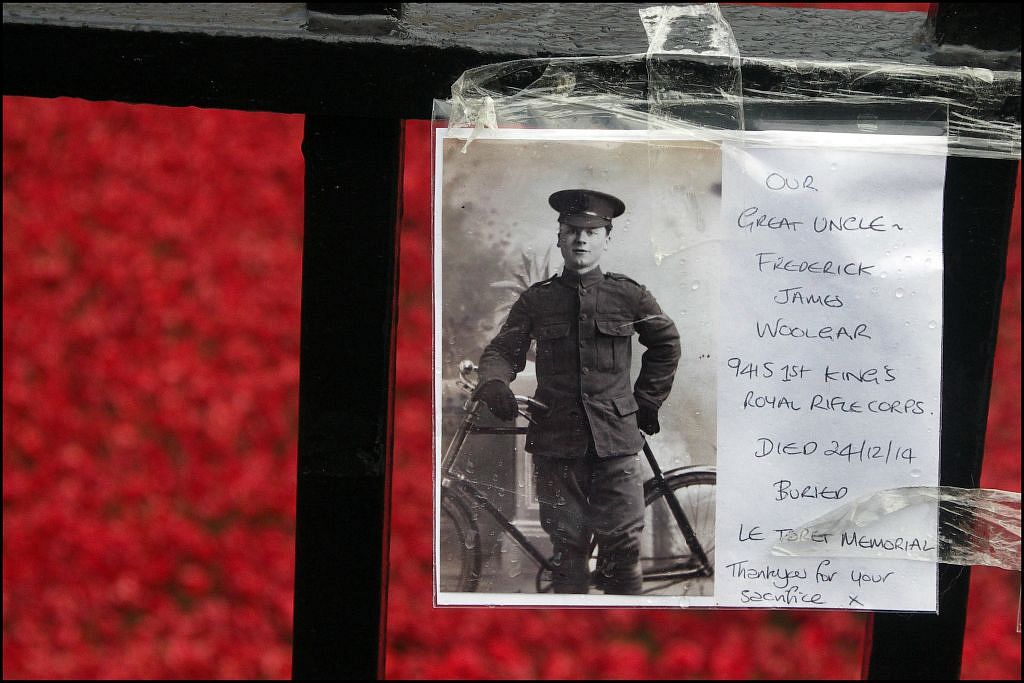 OUR
GREAT UNCLE ~
FREDERICK
JAMES
WOOLGAR
9415 1st KING'S
ROYAL RIFLE CORPS.
DIED 24/12/14
BURIED
LE TORET MEMORIAL
Thankyou for your
sacrifice x